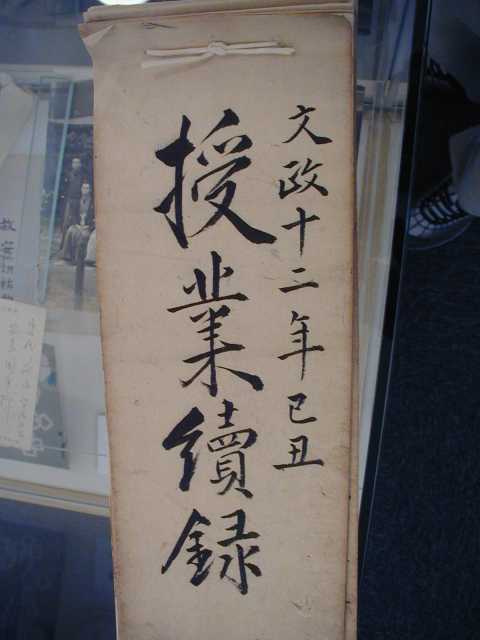 文政十二年己丑
授業續録